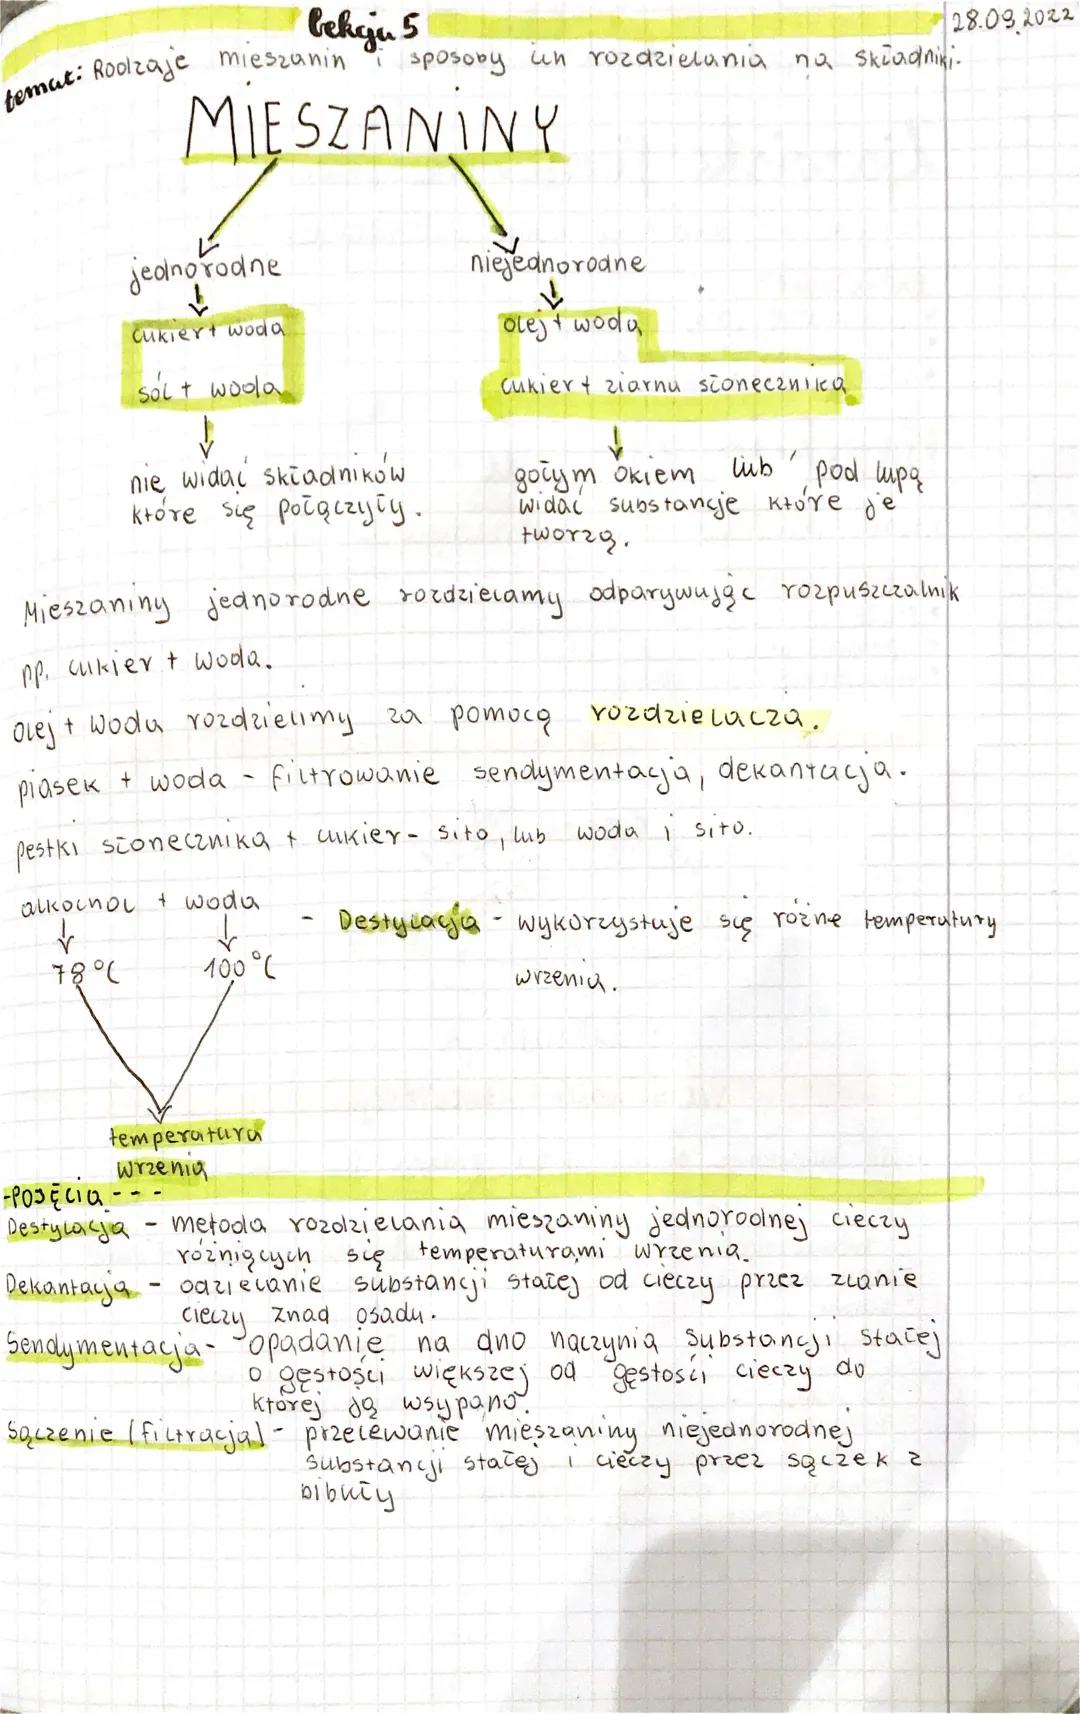 Lekcja 5
28.09.2022
temat: Rodzaje mieszanin i sposoby ich rozdzielania na składniki.
MIESZANINY
jednorodne
niejednorodne
cukier + woda
olej + woda
sól + woda
cukier + ziarna słonecznika
nie widać składników
które się połączyły.
gołym okiem lub pod lupą
widać substancje które je
tworzą.
Mieszaniny jednorodne rozdzielamy odparywując rozpuszczalnik
np. cukier + woda.
olej + woda rozdzielimy za pomocą rozdzielacza.
piasek + woda - filtrowanie sendymentacja, dekantacja.
pestki słonecznika + cukier - sito, lub woda i sito.
alkochol + woda
- Destylacja - wykorzystuje się różne temperatury
wrzenia.
78°C
100°C
temperatura
wrzenia
-POJĘCIA---
Destylacja - metoda rozdzielania mieszaniny jednorodnej cieczy
różniących się temperaturami wrzenia.
Dekantacja - odzielanie substancji stałej od cieczy przez zlanie
cieczy znad osadu.
Sendymentacja - opadanie na dno naczynia substancji stałej
o gęstości większej od gęstości cieczy do
której ją wsypano.
Sączenie (filtracja) - przelewanie mieszaniny niejednorodnej
substancji stałej i cieczy przez sączek z
bibuły